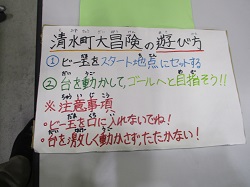 清水町大冒険の遊び方
①ビー玉をスタート地点にセットする
②台を動かして、ゴールへと目指そう!!
※注意事項
・ビー玉を口に入れないでね!
・台を激しく動かさず、たたかない!